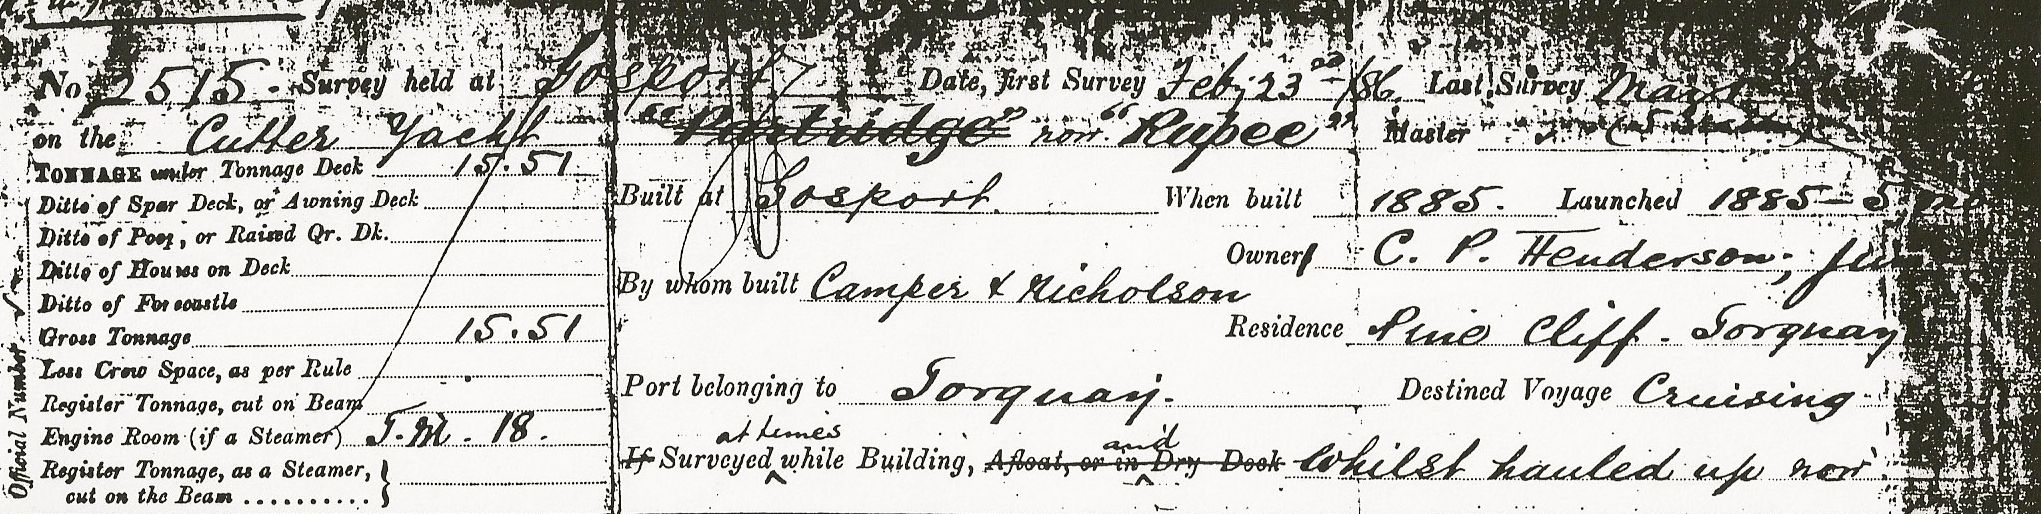 No 2515. Survey held at Gosport Date, first Survey Feby 23rd /86 Last Survey
on the Cutter Yacht "Partridge" now "Rupee" Master
TONNAGE under Tonnage Deck 15.51
Built at Gosport. When built 1885. Launched 1885 - 5 mo
Ditto of Spar Deck, or Awning Deck
Ditto of Poop, or Raised Qr. Dk.
Owner C. P. Henderson,
Ditto of Houses on Deck
By whom built Camper & Nicholson
Ditto of Forecastle
Gross Tonnage 15.51
Residence Pine Cliff. Torquay
Less Crew Space, as per Rule
Port belonging to Torquay. Destined Voyage Cruising
Register Tonnage, cut on Beam
Engine Room (if a Steamer) T.M. 18.
at times and
If Surveyed while Building, Afloat, or in Dry Dock Whilst hauled up now
Register Tonnage, as a Steamer,
cut on the Beam ..........
Official Number